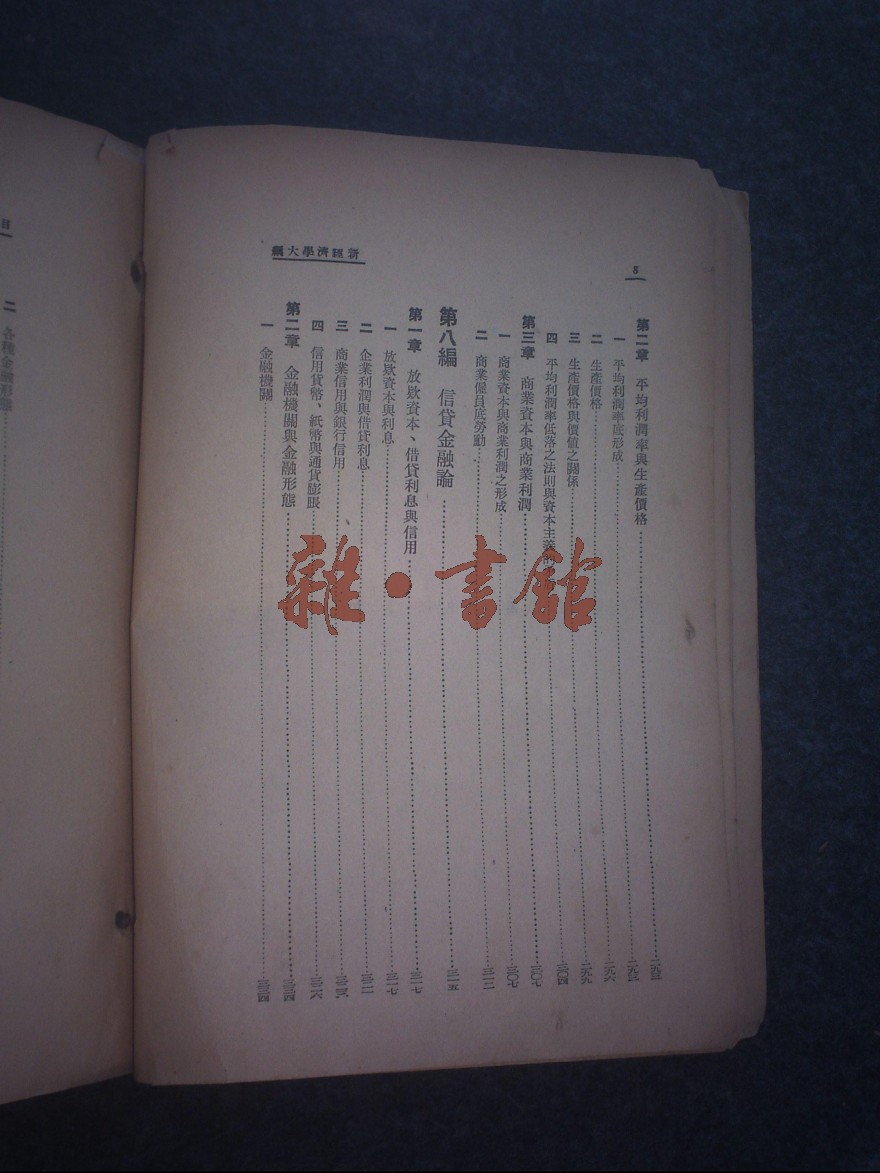 8
新經濟學大綱
第二章 平均利潤率與生產價格
一 平均利潤率底形成
二 生產價格 二九六
三 生產價格與價值之關係 二九九
四 平均利潤率低落之法則與資本主義的 三〇四
第三章 商業資本與商業利潤 三〇七
一 商業資本與商業利潤之形成 三〇七
二 商業僱員底勞動 三一二
第八編 信貸金融論 三一五
第一章 放欵資本、借貸利息與信用 三一七
一 放欵資本與利息 三一七
二 企業利潤與借貸利息
三 商業信用與銀行信用
四 信用貨幣、紙幣與通貨膨脹
第二章 金融機關與金融形態 三三四
一 金融機關 三三四
目
二 各種金融形態
雜·書館